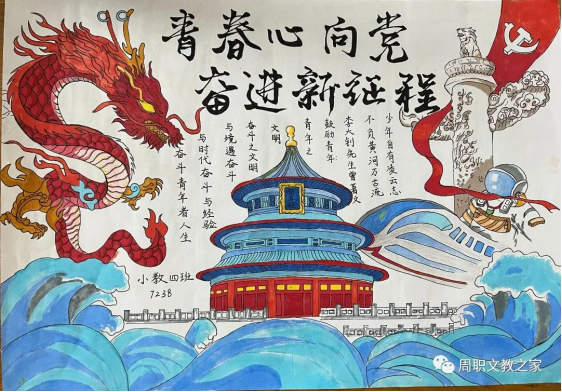 青春心向党
奋进新征程
少年自有凌云志
不负黄河万古流
李大钊先生曾著文
鼓励青年
青年之
文明
奋斗之文明
与境遇奋斗
与时代奋斗 与经验
奋斗青年者人生
小教四班
7238
周职文教之家